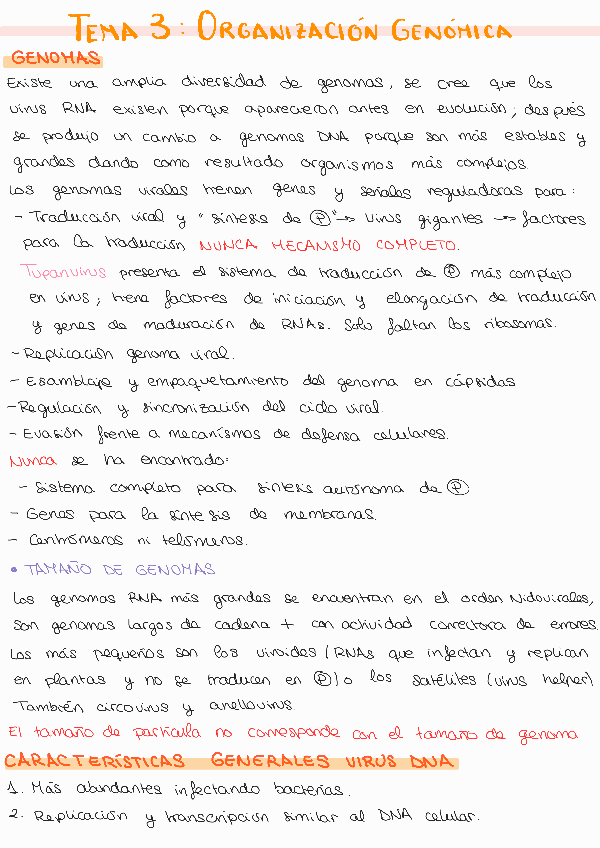 TEMA 3: ORGANIZACIÓN GENÓMICA
GENOMAS
Existe una amplia diversidad de genomas, se cree que los
virus RNA existen porque aparecieron antes en evolución; después
se produjo un cambio a genomas DNA porque son más estables y
grandes dando como resultado organismos más complejos.
Los genomas virales tienen genes y señales reguladoras para:
- Traducción viral y "síntesis de Ⓟ" → virus gigantes → factores
para la traducción NUNCA MECANISMO COMPLETO.
Tupanvirus presenta el sistema de traducción de Ⓟ más complejo
en virus; tiene factores de iniciación y elongación de traducción
y genes de maduración de RNAs. Solo faltan los ribosomas.
- Replicación genoma viral.
- Esamblaje y empaquetamiento del genoma en cápsidas
- Regulación y sincronización del ciclo viral.
- Evasión frente a mecanismos de defensa celulares.
Nunca se ha encontrado:
- Sistema completo para síntesis autónoma de Ⓟ
- Genes para la síntesis de membranas.
- Centrómeros ni telómeros.
• TAMAÑO DE GENOMAS
Los genomas RNA más grandes se encuentran en el orden Nidovirales,
son genomas largos de cadena + con actividad correctora de errores.
Los más pequeños son los viroides (RNAs que infectan y replican
en plantas y no se traducen en Ⓟ) o los satélites (virus helper)
También circovirus y anellovirus.
El tamaño de partícula no corresponde con el tamaño de genoma
CARACTERÍSTICAS GENERALES VIRUS DNA
1. Más abundantes infectando bacterias.
2. Replicación y transcripción similar al DNA celular.